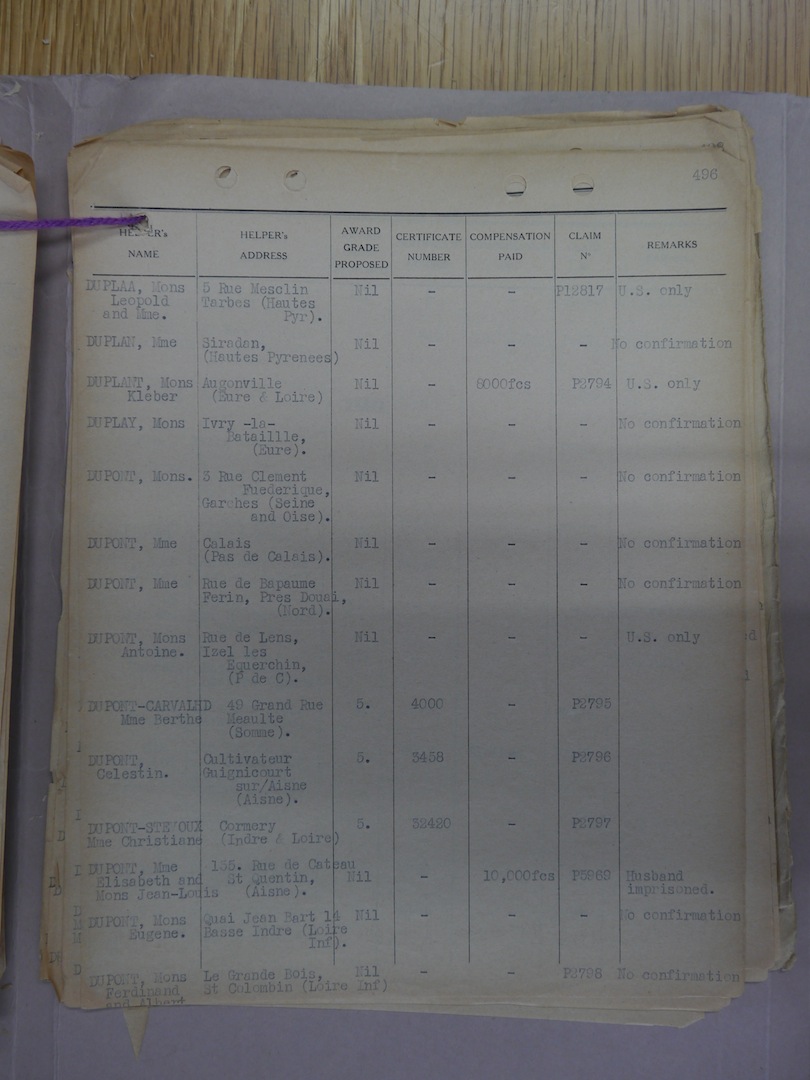 496
HELPER's NAME HELPER's ADDRESS AWARD GRADE PROPOSED CERTIFICATE NUMBER COMPENSATION PAID CLAIM N° REMARKS
DUPLAA, Mons 5 Rue Mesclin Nil - - P12817 U.S. only
Leopold Tarbes (Hautes
and Mme. Pyr).
DUPLAN, Mme Siradan, Nil - - - No confirmation
(Hautes Pyrenees)
DUPLANT, Mons Augonville Nil - 8000fcs P2794 U.S. only
Kleber (Eure & Loire)
DUPLAY, Mons Ivry -la- Nil - - - No confirmation
Bataillle,
(Eure).
DUPONT, Mons. 3 Rue Clement Nil - - - No confirmation
Fuederique,
Garches (Seine
and Oise).
DUPONT, Mme Calais Nil - - - No confirmation
(Pas de Calais).
DUPONT, Mme Rue de Bapaume Nil - - - No confirmation
Ferin, Pres Douai,
(Nord).
DUPONT, Mons Rue de Lens, Nil - - - U.S. only
Antoine. Izel les
Equerchin,
(P de C).
DUPONT-CARVALHD 49 Grand Rue 5. 4000 - P2795
Mme Berthe Meaulte
(Somme).
DUPONT, Cultivateur 5. 3458 - P2796
Celestin. Guignicourt
sur/Aisne
(Aisne).
DUPONT- Cormery 5. 32420 - P2797
Mme Christiane (Indre & Loire)
DUPONT, Mme 135. Rue de Cateau
Elisabeth and St Quentin, Nil - 10,000fcs P5969 Husband
Mons Jean-Louis (Aisne). imprisoned.
DUPONT, Mons Quai Jean Bart 14 Nil - - - No confirmation
Eugene. Basse Indre (Loire
Inf).
DUPONT, Mons Le Grande Bois, Nil - - P2798 No confirmation
Ferdinand St Colombin (Loire Inf)
and Albert